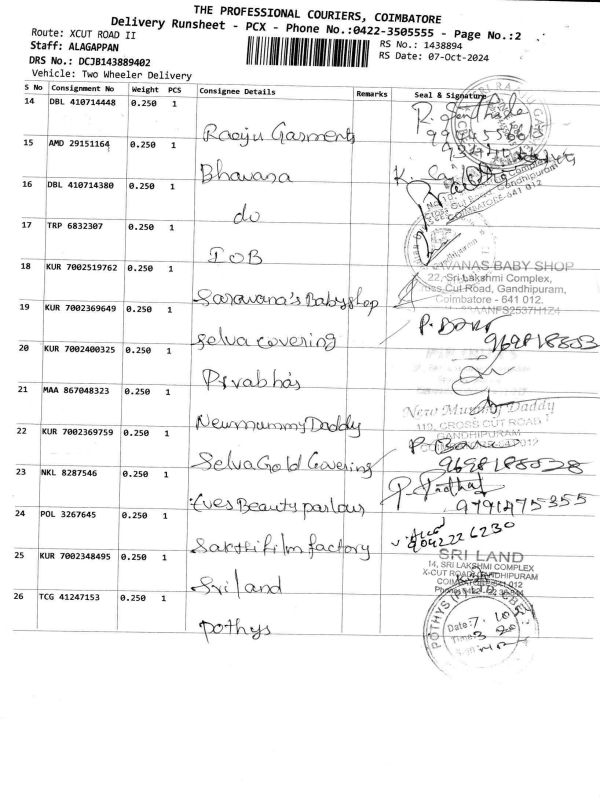 THE PROFESSIONAL COURIERS, COIMBATORE
Delivery Runsheet - PCX - Phone No.:0422-3505555 - Page No.:2
Route: XCUT ROAD II
RS No.: 1438894
Staff: ALAGAPPAN
RS Date: 07-Oct-2024
DRS No.: DCJB143889402
Vehicle: Two Wheeler Delivery
S No Consignment No Weight PCS Consignee Details Remarks Seal & Signature
14 DBL 410714448 0.250 1 Raoju Garments
15 AMD 29151164 0.250 1 Bhavana
16 DBL 410714380 0.250 1 do
COIMBATORE-641 012
17 TRP 6832307 0.250 1 IOB
18 KUR 7002519762 0.250 1 Saravana's Babyshop
VANAS BABY SHOP
22, Sri Lakshmi Complex,
Cut Road, Gandhipuram,
Coimbatore - 641 012.
19 KUR 7002369649 0.250 1 Selva covering
20 KUR 7002400325 0.250 1 Prvabhas
21 MAA 867048323 0.250 1 Newmummy Daddy
New Mummy Daddy
113, CROSS CUT ROAD
GANDHIPURAM
22 KUR 7002369759 0.250 1 Selva Gold Covering
9698188028
23 NKL 8287546 0.250 1 Eves Beauty parlour
9791475355
24 POL 3267645 0.250 1 Sakthi film factory
9042226230
25 KUR 7002348495 0.250 1 Sri land
SRI LAND
14, SRI LAKSHMI COMPLEX
X-CUT ROAD, GANDHIPURAM
COIMBATORE-641 012
26 TCG 41247153 0.250 1 pothys
POTHYS
Date: 7.10
Time: 3